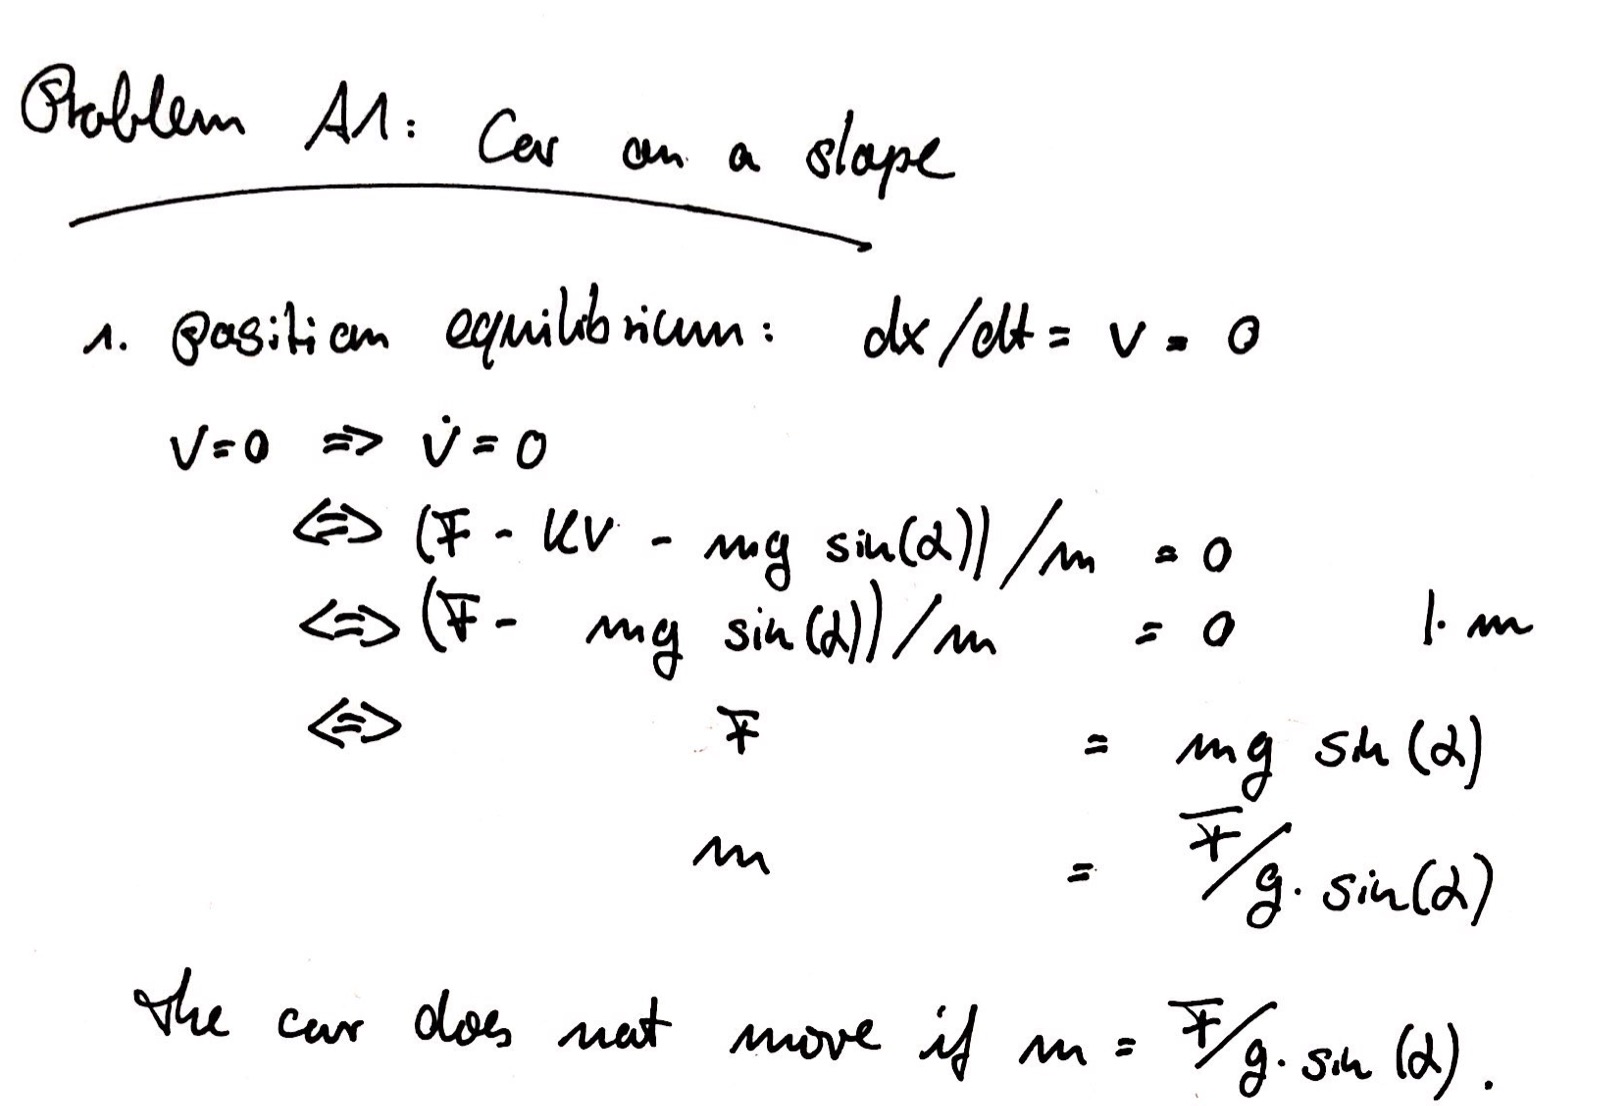 Problem A1: Car on a slope
1. Position equilibrium: dx/dt = v = 0
v=0 => v̇ = 0
<=> (F - kv - mg sin(α))/m = 0
<=> (F - mg sin(α))/m = 0 |· m
<=> F = mg sin(α)
m = F/g· sin(α)
The car does not move if m = F/g· sin(α).